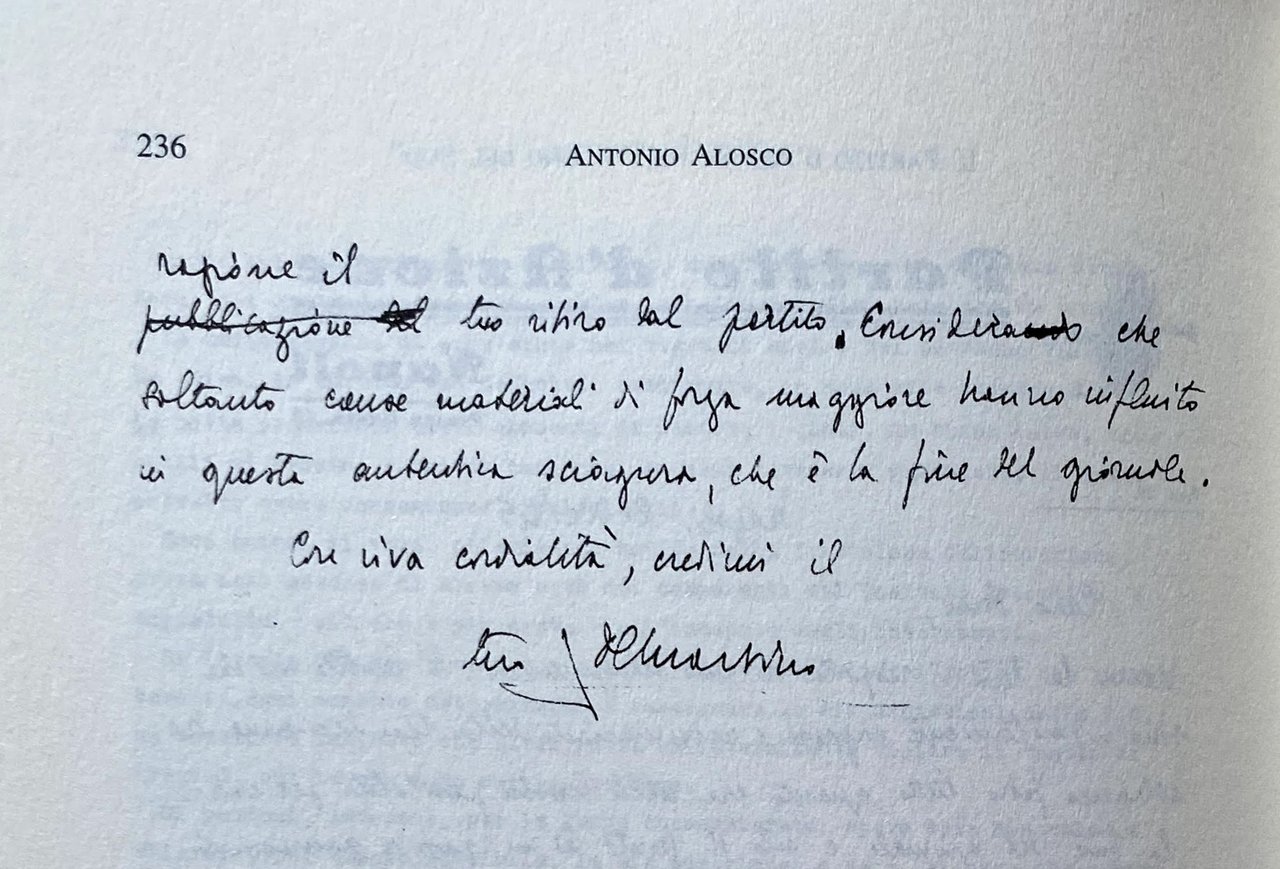 236
ANTONIO ALOSCO
ragione il
pubblicazione del tuo ritiro dal partito. Considerando che
soltanto cause materiali di forza maggiore hanno influito
in questa autentica sciagura, che è la fine del giornale.
Con viva cordialità, credimi il
tuo F. De Martino